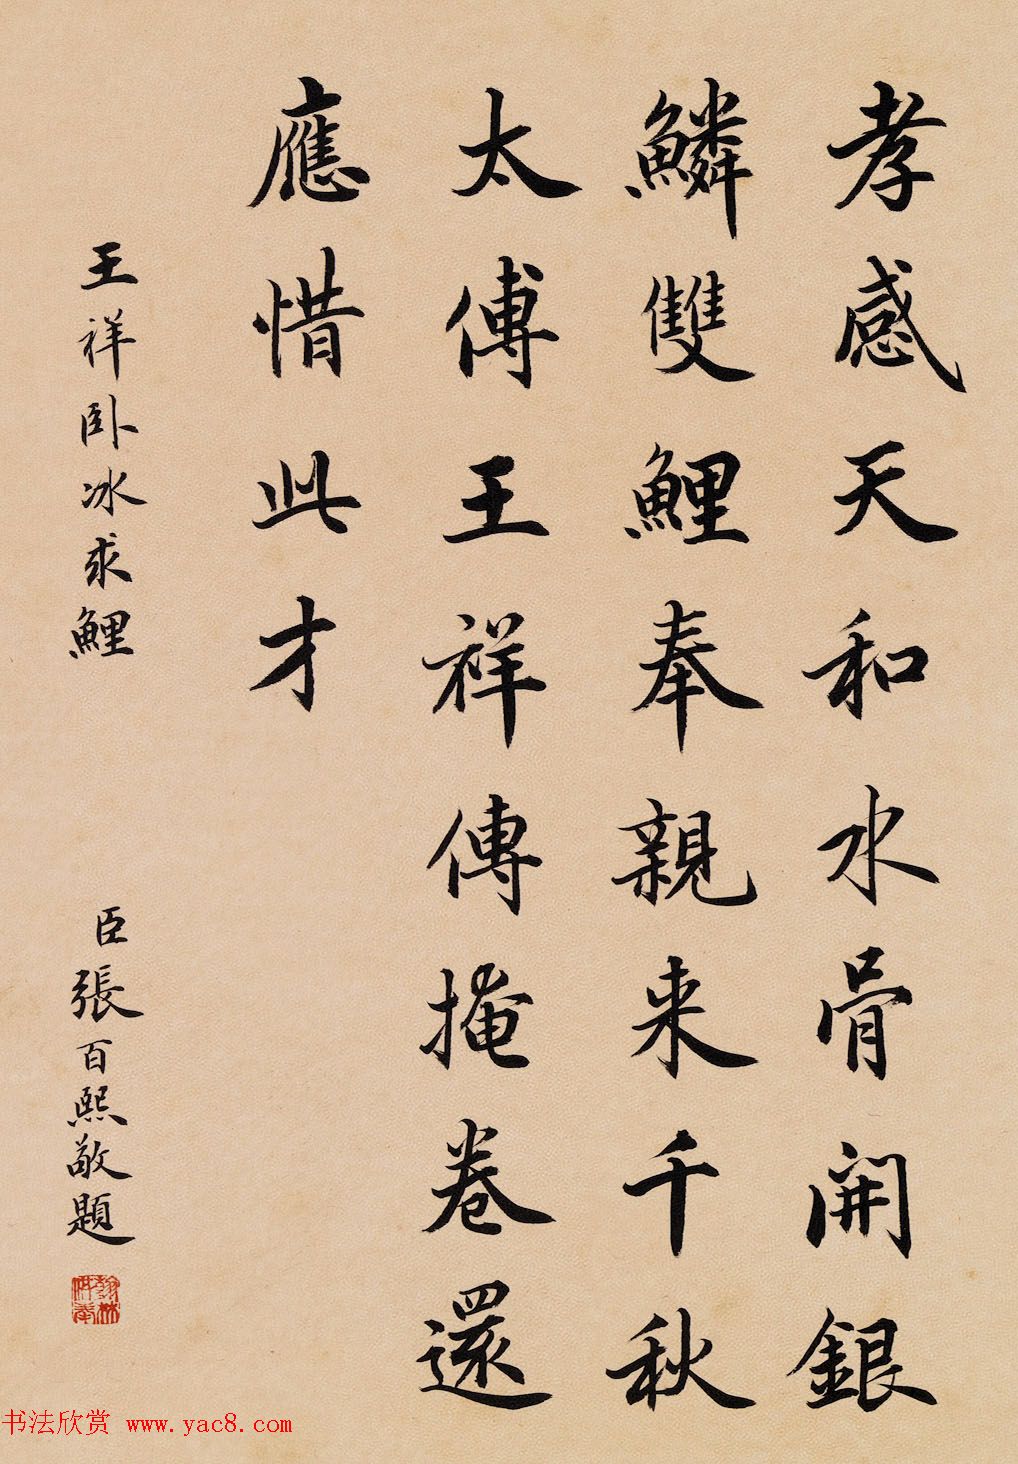 孝感天和水骨開銀
鱗雙鯉奉親来千秋
太傅王祥傳掩卷還
應惜此才
王祥卧冰求鯉
臣張百熙敬題
书法欣赏 www.yac8.com